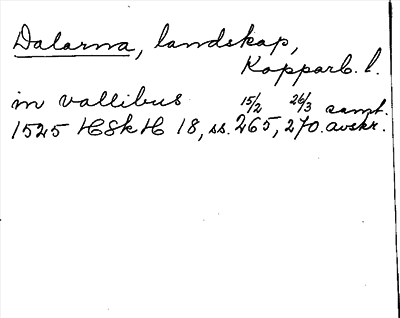 Dalarna, landskap,
Kopparb. l.
in vallibus 15/2 26/3 samt.
1525 HSkH 18, ss. 265, 270. avskr.